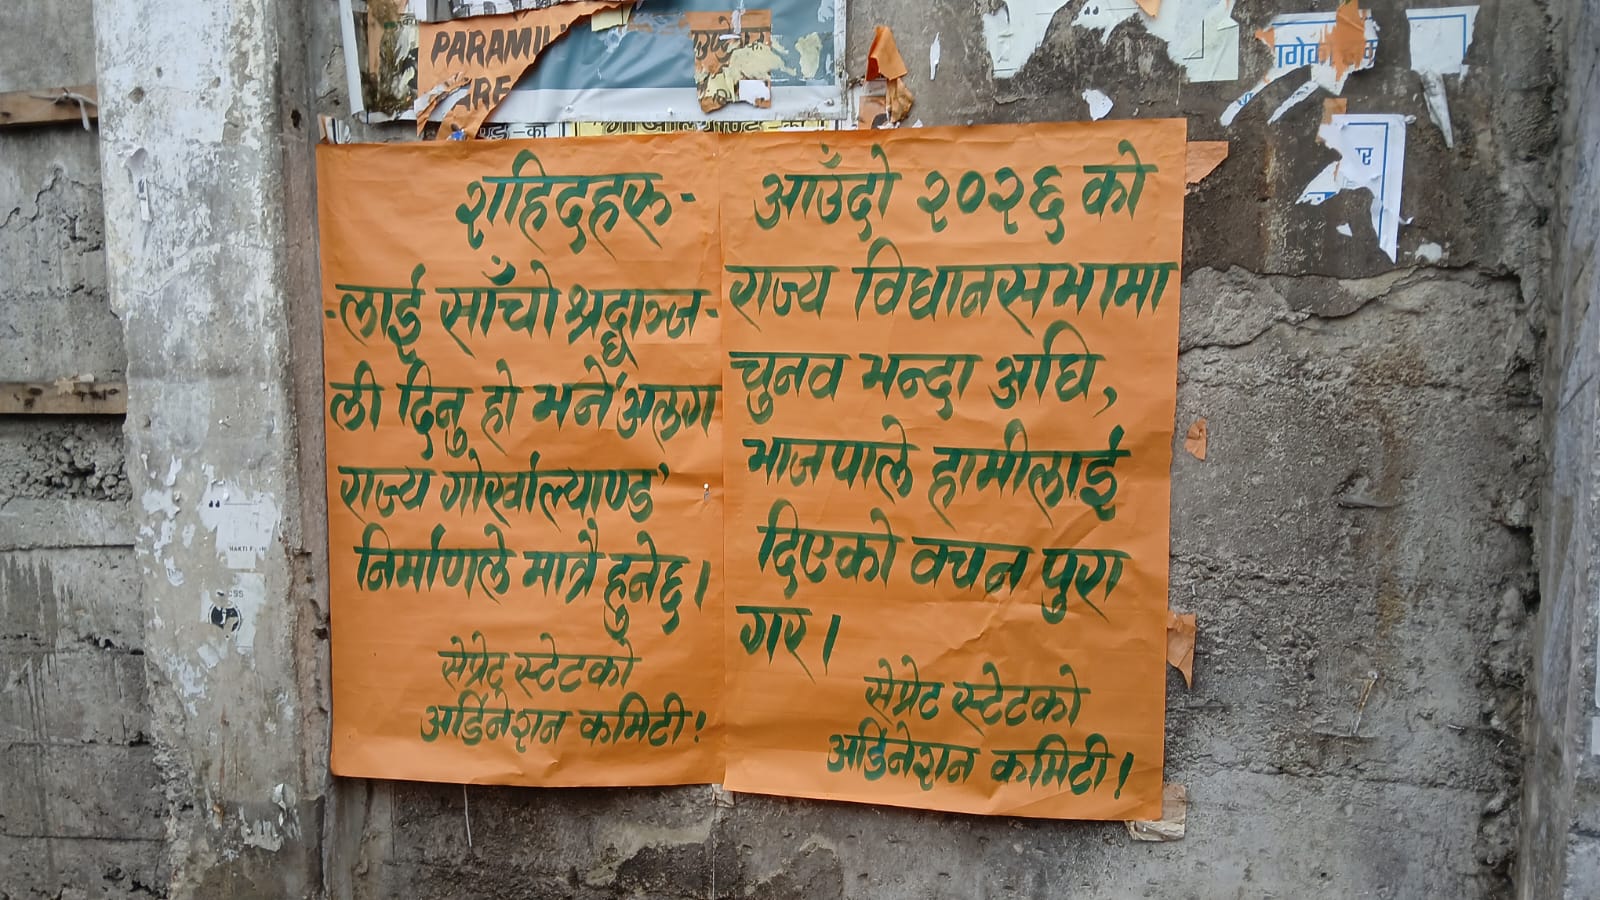 PARAMI
शहिदहरू-
-लाई साँचो श्रद्धाञ्ज-
ली दिनु हो भने 'अलग
राज्य गोर्खाल्याण्ड'
निर्माणले मात्रै हुनेछ।
सेप्रेट् स्टेटको
अर्डिनेशन कमिटी!
आउँदो २०२६ को
राज्य विधानसभामा
चुनव भन्दा अघि,
भाजपाले हामीलाई
दिएको वचन पुरा
गर।
सेप्रेट स्टेटको
अर्डिनेशन कमिटी!